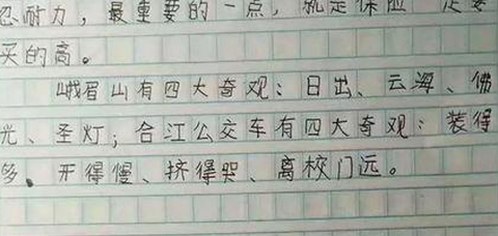 忍耐力,最重要的一点,就是保险一定要
买的高。
峨眉山有四大奇观:日出、云海、佛
光、圣灯;合江公交车有四大奇观:装得
多、开得慢、挤得哭、离校门远。